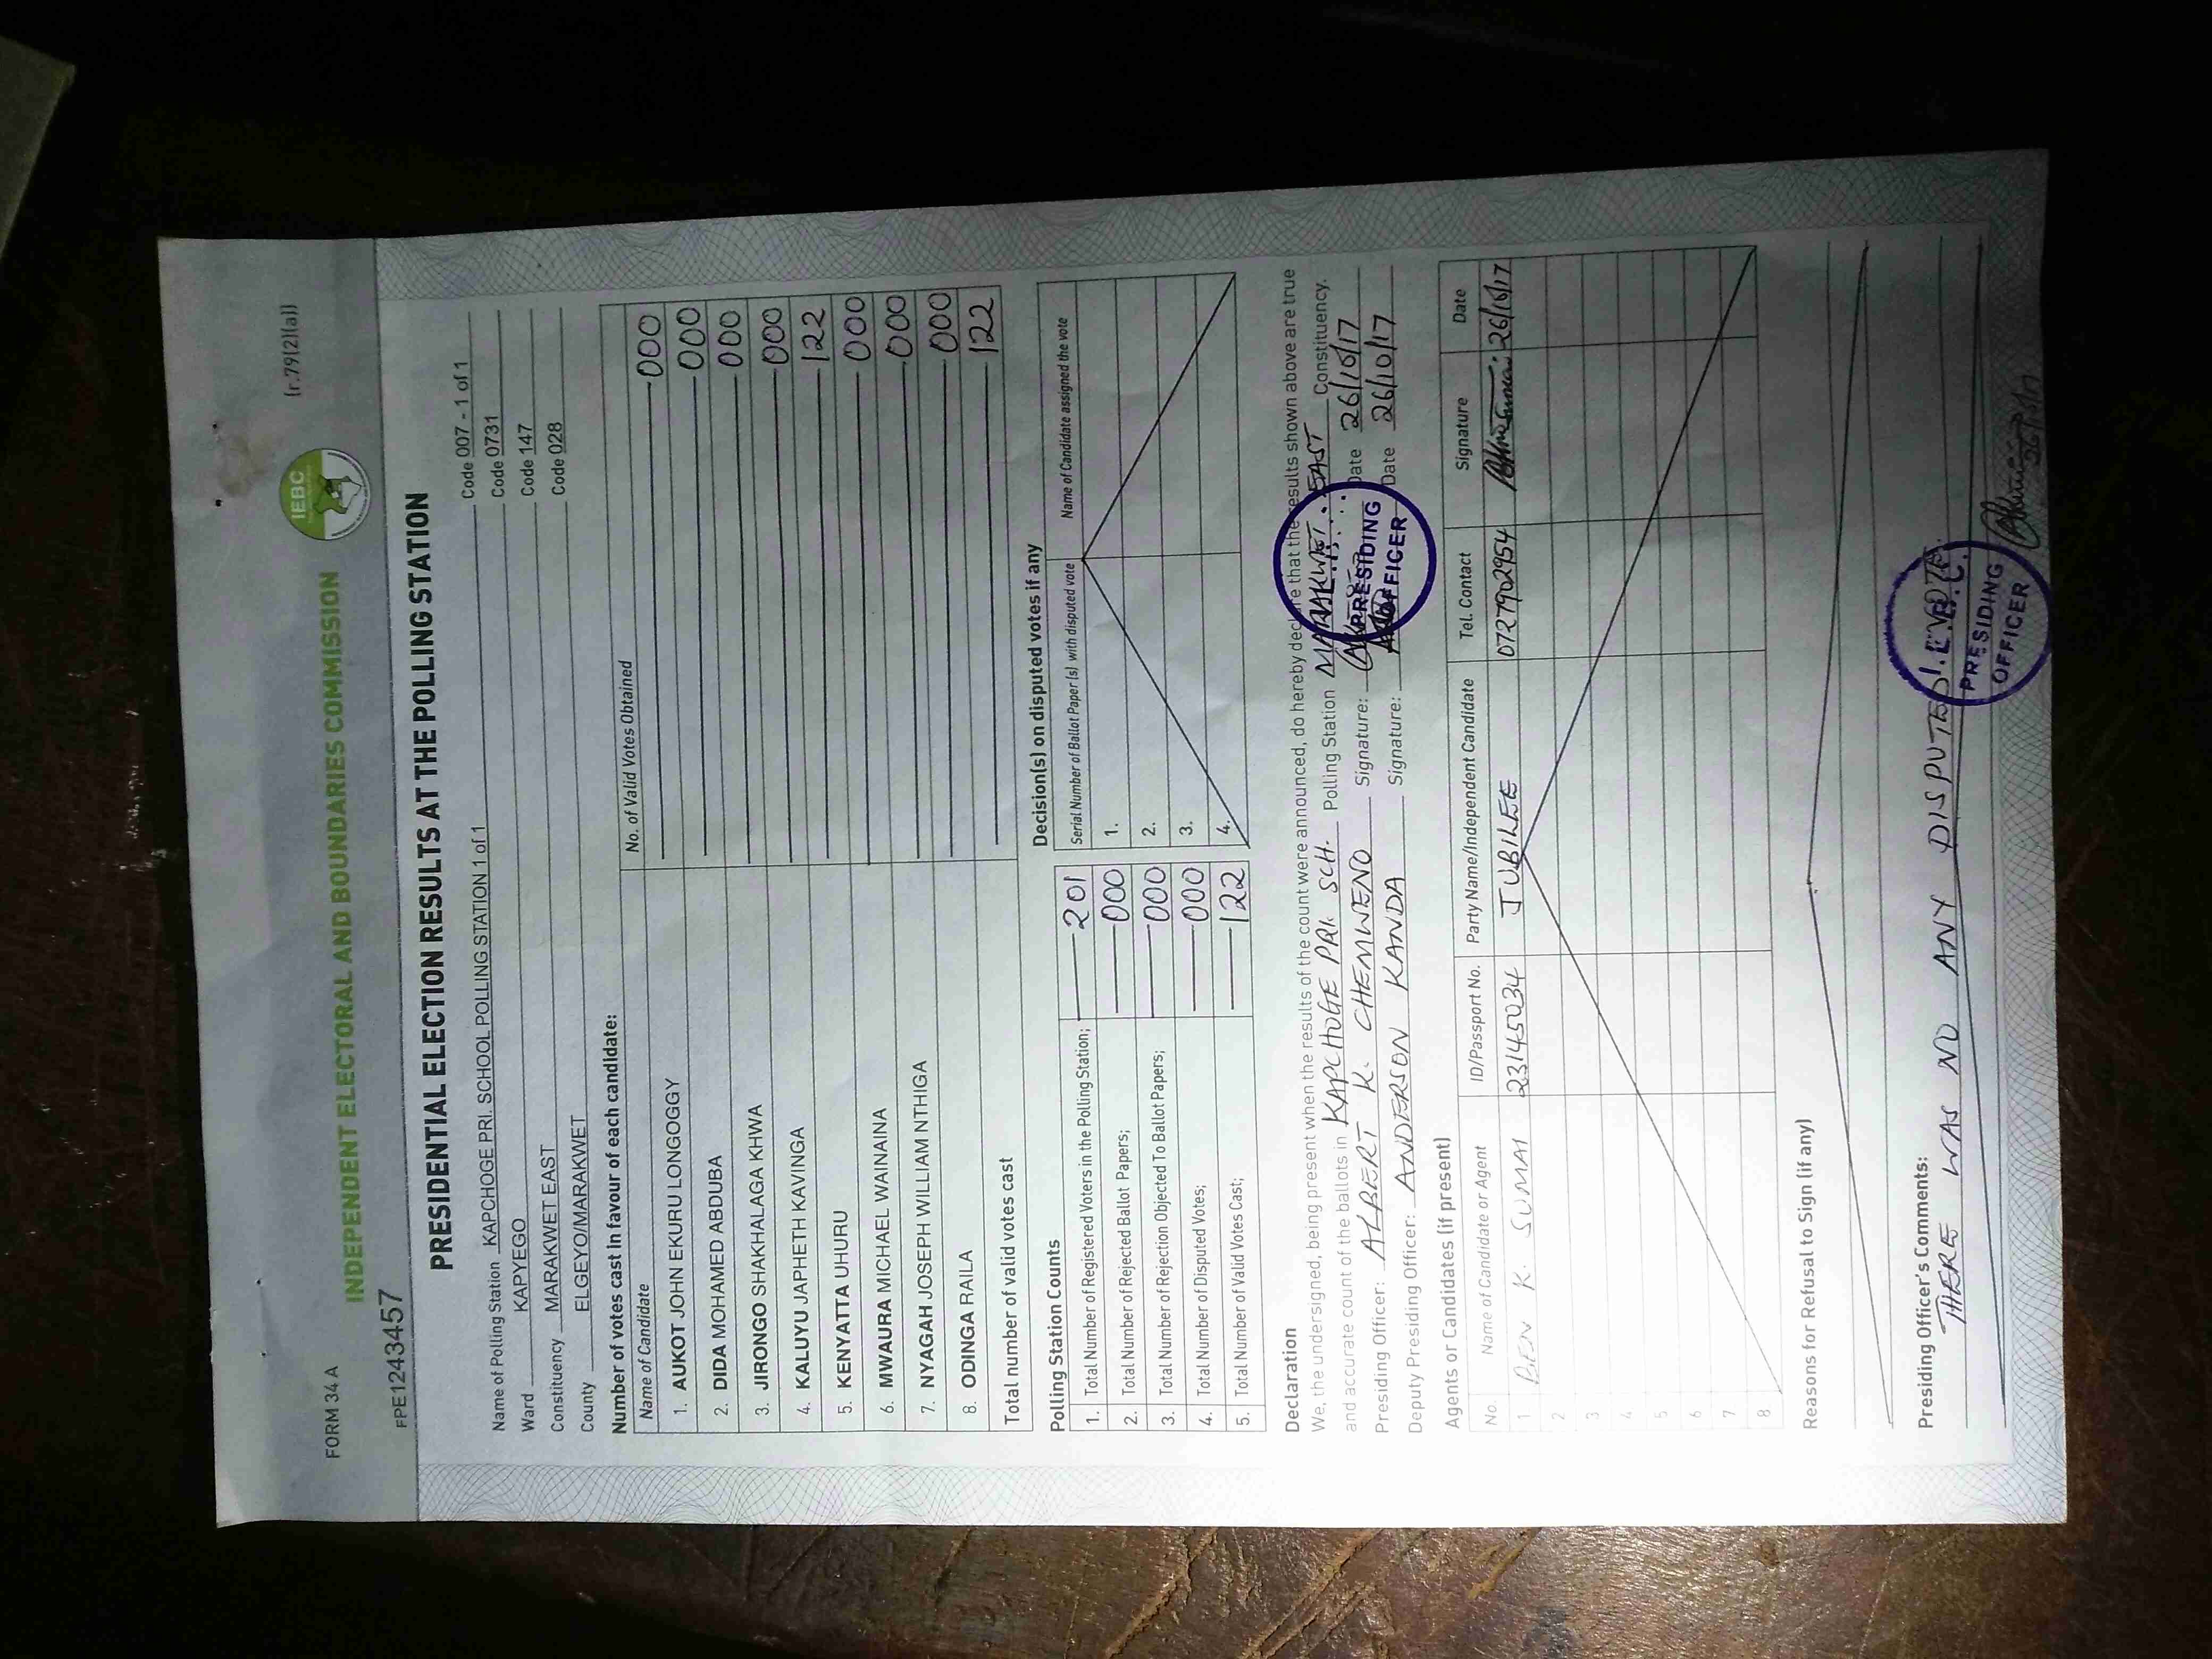 FORM 34 A
(r.79(2)(a))
IEBC
INDEPENDENT ELECTORAL AND BOUNDARIES COMMISSION
FPE1243457
PRESIDENTIAL ELECTION RESULTS AT THE POLLING STATION
Name of Polling Station KAPCHOGE PRI. SCHOOL POLLING STATION 1 of 1 Code 007 - 1 of 1
Ward KAPYEGO Code 0731
Constituency MARAKWET EAST Code 147
County ELGEYO/MARAKWET Code 028
Number of votes cast in favour of each candidate:
Name of Candidate No. of Valid Votes Obtained
1. AUKOT JOHN EKURU LONGOGGY 000
2. DIDA MOHAMED ABDUBA 000
3. JIRONGO SHAKHALAGA KHWA 000
4. KALUYU JAPHETH KAVINGA 000
5. KENYATTA UHURU 122
6. MWAURA MICHAEL WAINAINA 000
7. NYAGAH JOSEPH WILLIAM NTHIGA 000
8. ODINGA RAILA 000
Total number of valid votes cast 122
Polling Station Counts
1. Total Number of Registered Voters in the Polling Station; 201
2. Total Number of Rejected Ballot Papers; 000
3. Total Number of Rejection Objected To Ballot Papers; 000
4. Total Number of Disputed Votes; 000
5. Total Number of Valid Votes Cast; 122
Decision(s) on disputed votes if any
Serial Number of Ballot Paper (s) with disputed vote Name of Candidate assigned the vote
1.
2.
3.
4.
Declaration
We, the undersigned, being present when the results of the count were announced, do hereby declare that the results shown above are true
and accurate count of the ballots in KAPCHOGE PRI. SCH. Polling Station MARAKWET EAST Constituency.
Presiding Officer: ALBERT K. CHEMWENO Signature: Date 26/10/17
Deputy Presiding Officer: ANDERSON KANDA Signature: Date 26/10/17
PRESIDING
OFFICER
Agents or Candidates (if present)
No. Name of Candidate or Agent ID/Passport No. Party Name/Independent Candidate Tel. Contact Signature Date
1 BEN K. SUMAI 23145234 JUBILEE 0727902954 26/10/17
2
3
4
5
6
7
8
Reasons for Refusal to Sign (if any)
Presiding Officer's Comments:
THERE WAS NO ANY DISPUTED
PRESIDING
OFFICER